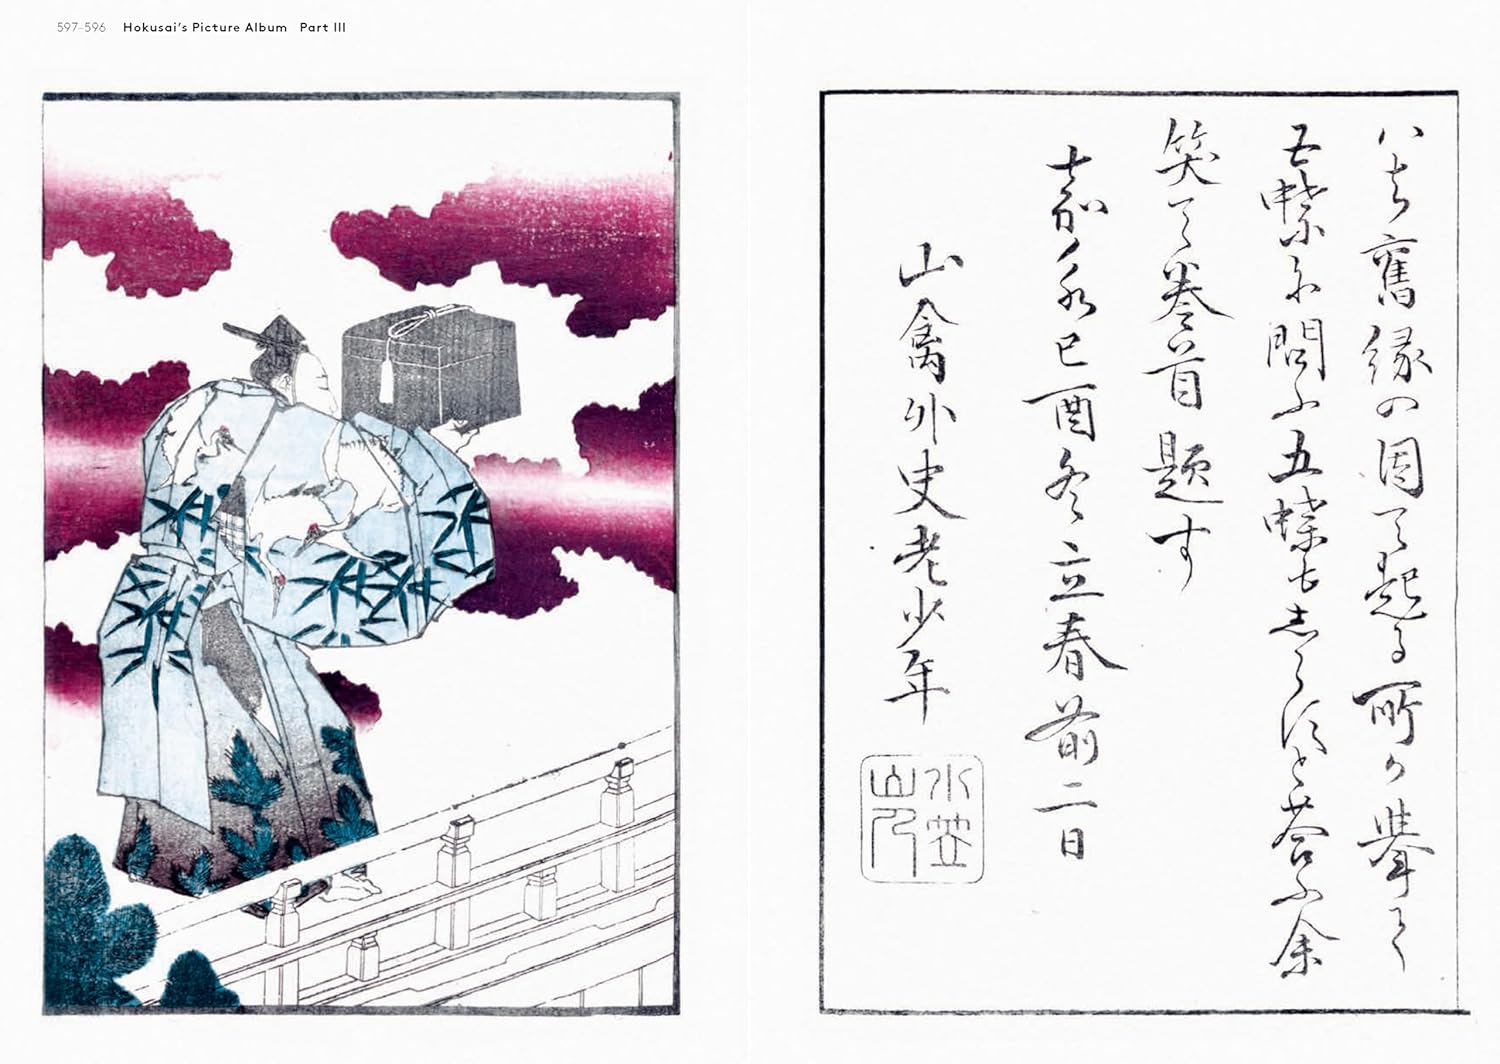 597–596 Hokusai's Picture Album Part III
舊縁の因て起る所を挙て
五蝶に問ふ五蝶もしらずと答ふ余
笑て巻首題す
嘉永己酉冬立春前二日
山禽外史老少年